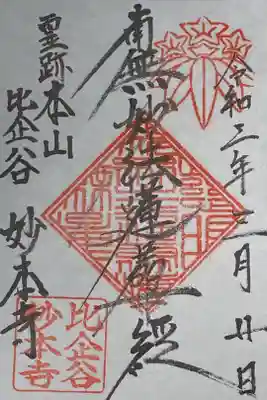 令和三年二月廿日
南無妙法蓮華経
霊跡本山
比企谷
妙本寺
比企谷
妙本寺